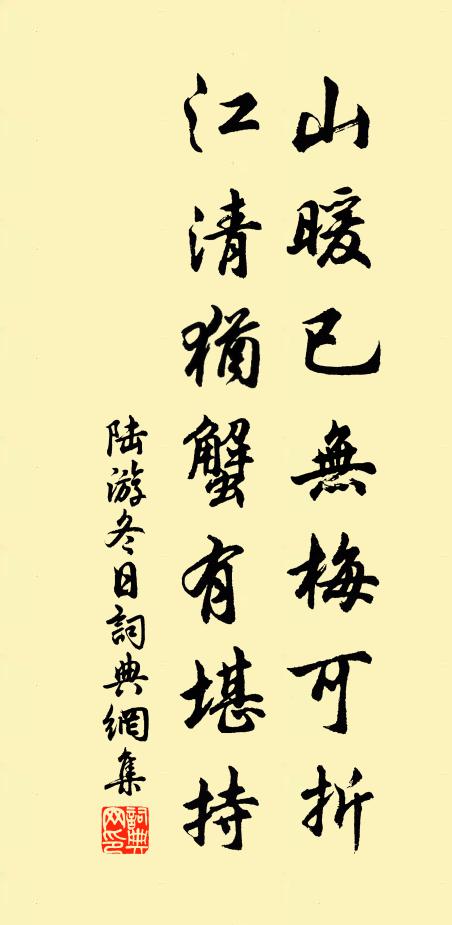 山暖已無梅可折
江清猶蟹有堪持
陆游冬日詞典網集
詞典網印